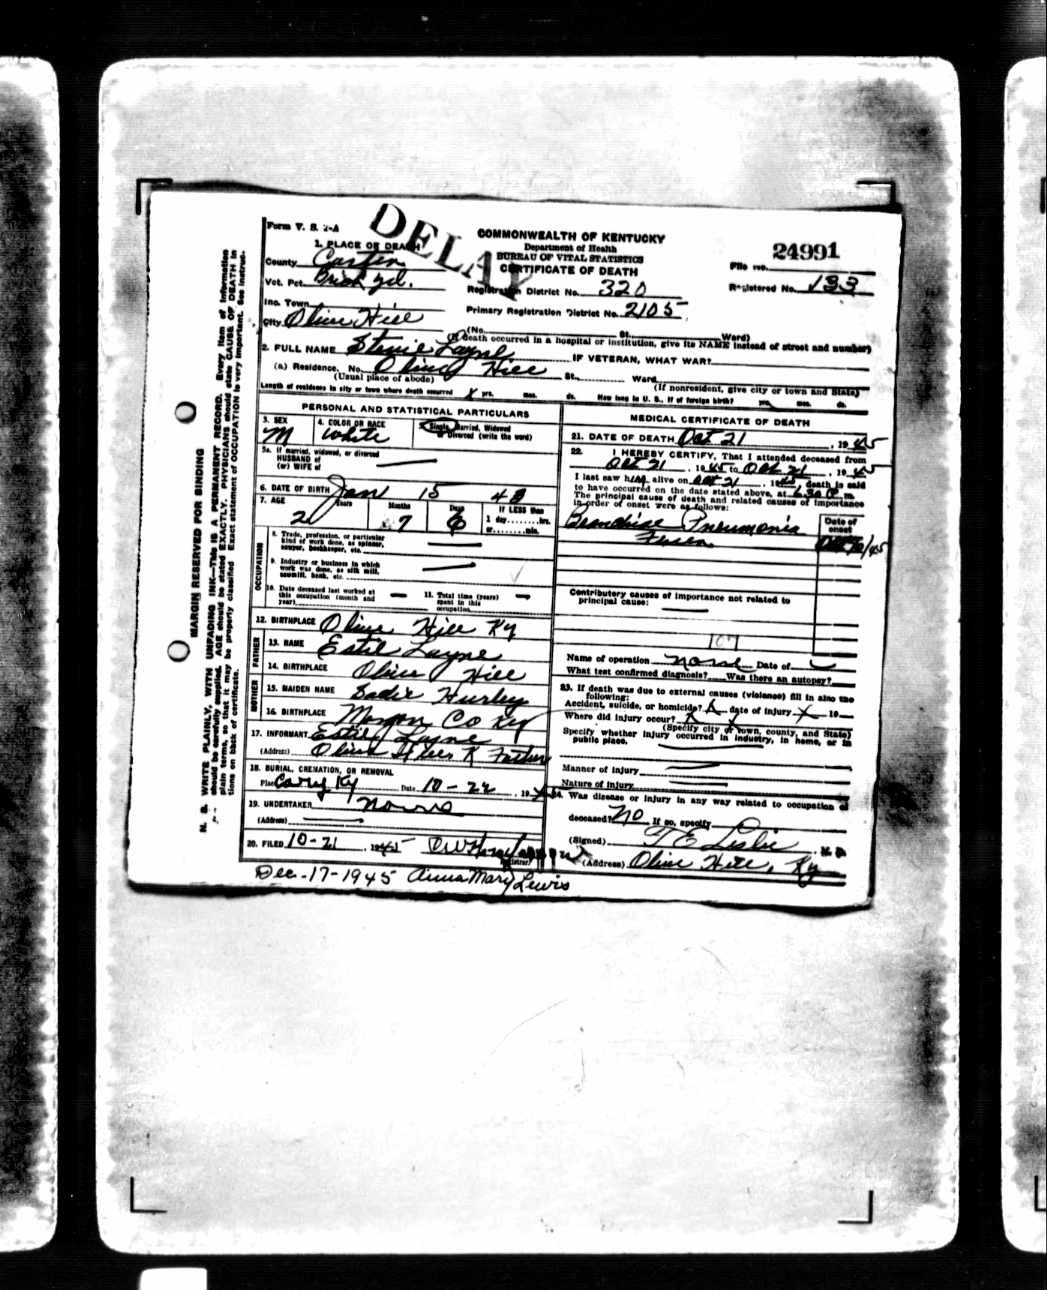 Form V. S. 1-A
DELAY
COMMONWEALTH OF KENTUCKY
Department of Health
BUREAU OF VITAL STATISTICS
CERTIFICATE OF DEATH
24991
File No.
Registered No. 133
1. PLACE OF DEATH
County Carter
Vot. Pct.
Registration District No. 320
Inc. Town
Primary Registration District No. 2105
City Olive Hill
(No. St. Ward)
(If death occurred in a hospital or institution, give its NAME instead of street and number)
2. FULL NAME Layne IF VETERAN, WHAT WAR?
(a) Residence. No. Olive Hill St. Ward
(Usual place of abode) (If nonresident, give city or town and State)
Length of residence in city or town where death occurred yrs. mos. ds. How long in U. S., if of foreign birth? yrs. mos. ds.
PERSONAL AND STATISTICAL PARTICULARS
3. SEX M
4. COLOR OR RACE White
Single, Married, Widowed
or Divorced (write the word)
5a. If married, widowed, or divorced
HUSBAND of
(or) WIFE of
6. DATE OF BIRTH Jan 15 43
7. AGE Years 2 Months 7 Days 6 If LESS than
1 day........hrs.
or........min.
OCCUPATION
8. Trade, profession, or particular
kind of work done, as spinner,
sawyer, bookkeeper, etc.
9. Industry or business in which
work was done, as silk mill,
sawmill, bank, etc.
10. Date deceased last worked at
this occupation (month and
year)
11. Total time (years)
spent in this
occupation
12. BIRTHPLACE Olive Hill Ky
FATHER
13. NAME Estil Layne
14. BIRTHPLACE Olive Hill
MOTHER
15. MAIDEN NAME Sadie Hurley
16. BIRTHPLACE Morgan Co Ky
17. INFORMANT Estil Layne
(Address) Olive Hill K Father
18. BURIAL, CREMATION, OR REMOVAL
Place Ky Date 10-22, 19
19. UNDERTAKER None
(Address)
20. FILED 10-21, 1945
Registrar
Dec.-17-1945 Anna Mary Lewis
MEDICAL CERTIFICATE OF DEATH
21. DATE OF DEATH Oct 21, 1945
22. I HEREBY CERTIFY, That I attended deceased from
Oct 21, 1945 to Oct 21, 1945
I last saw him alive on Oct 21, 1945, death is said
to have occurred on the date stated above, at 6:30 P m.
The principal cause of death and related causes of importance
in order of onset were as follows:
Date of
onset
Pneumonia
Contributory causes of importance not related to
principal cause:
107
Name of operation none Date of
What test confirmed diagnosis? Was there an autopsy?
23. If death was due to external causes (violence) fill in also the
following:
Accident, suicide, or homicide? X date of injury X 19
Where did injury occur? X
(Specify city or town, county, and State)
Specify whether injury occurred in industry, in home, or in
public place.
Manner of injury
Nature of injury
24. Was disease or injury in any way related to occupation of
deceased? No If so, specify
(Signed) T E Leslie, M. D.
(Address) Olive Hill, Ky
MARGIN RESERVED FOR BINDING
N. B. WRITE PLAINLY, WITH UNFADING INK—THIS IS A PERMANENT RECORD. Every item of information
should be carefully supplied. AGE should be stated EXACTLY. PHYSICIANS should state CAUSE OF DEATH in
plain terms, so that it may be properly classified. Exact statement of OCCUPATION is very important. See instruc-
tions on back of certificate.